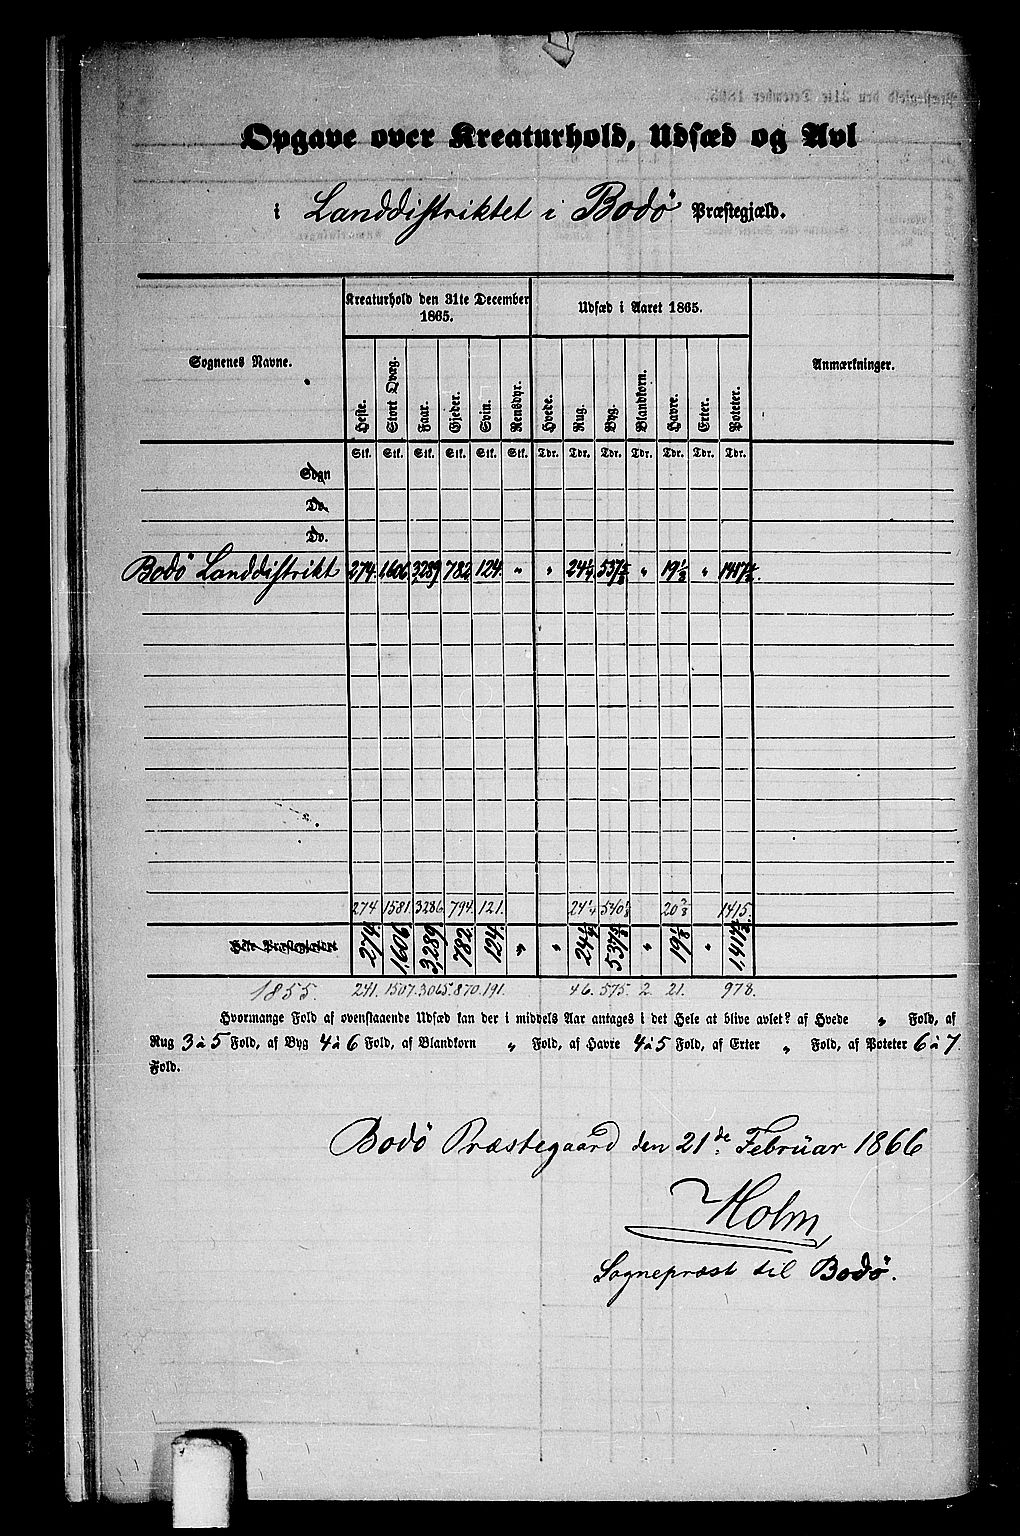 Opgave over Kreaturhold, Udsæd og Avl
i Landdistriktet i Bodø Præstegjæld.
Sognenes Navne.
Kreaturhold den 31te December 1865.
Udsæd i Aaret 1865.
Anmærkninger.
Heste. Stort Qvæg. Faar. Gjeder. Svin. Rensdyr. Hvede. Rug. Byg. Blandkorn. Havre. Erter. Poteter.
Stk. Stk. Stk. Stk. Stk. Stk. Tdr. Tdr. Tdr. Tdr. Tdr. Tdr. Tdr.
Sogn
Do.
Do.
Bodø Landdistrikt 274. 1606 3289 782 124. " " 24 1/4 " "
274 1581. 3286. 794. 121. 24 1/4 540 1/8 20 3/8 1415.
Hele Præstegjældet 274. 1606 3,289 782. 124. " " 24 1/4 " "
1855. 241. 1507. 3065. 870. 191. 46. 575. 2. 21. 978.
Hvormange Fold af ovenstaaende Udsæd kan der i middels Aar antages i det Hele at blive avlet? af Hvede " Fold, af
Rug 3 à 5 Fold, af Byg 4 à 6 Fold, af Blandkorn " Fold, af Havre 4 à 5 Fold, af Erter " Fold, af Poteter 6 à 7
Fold.
Bodø Præstegaard den 21de Februar 1866
Holm
Sognepræst til Bodø.